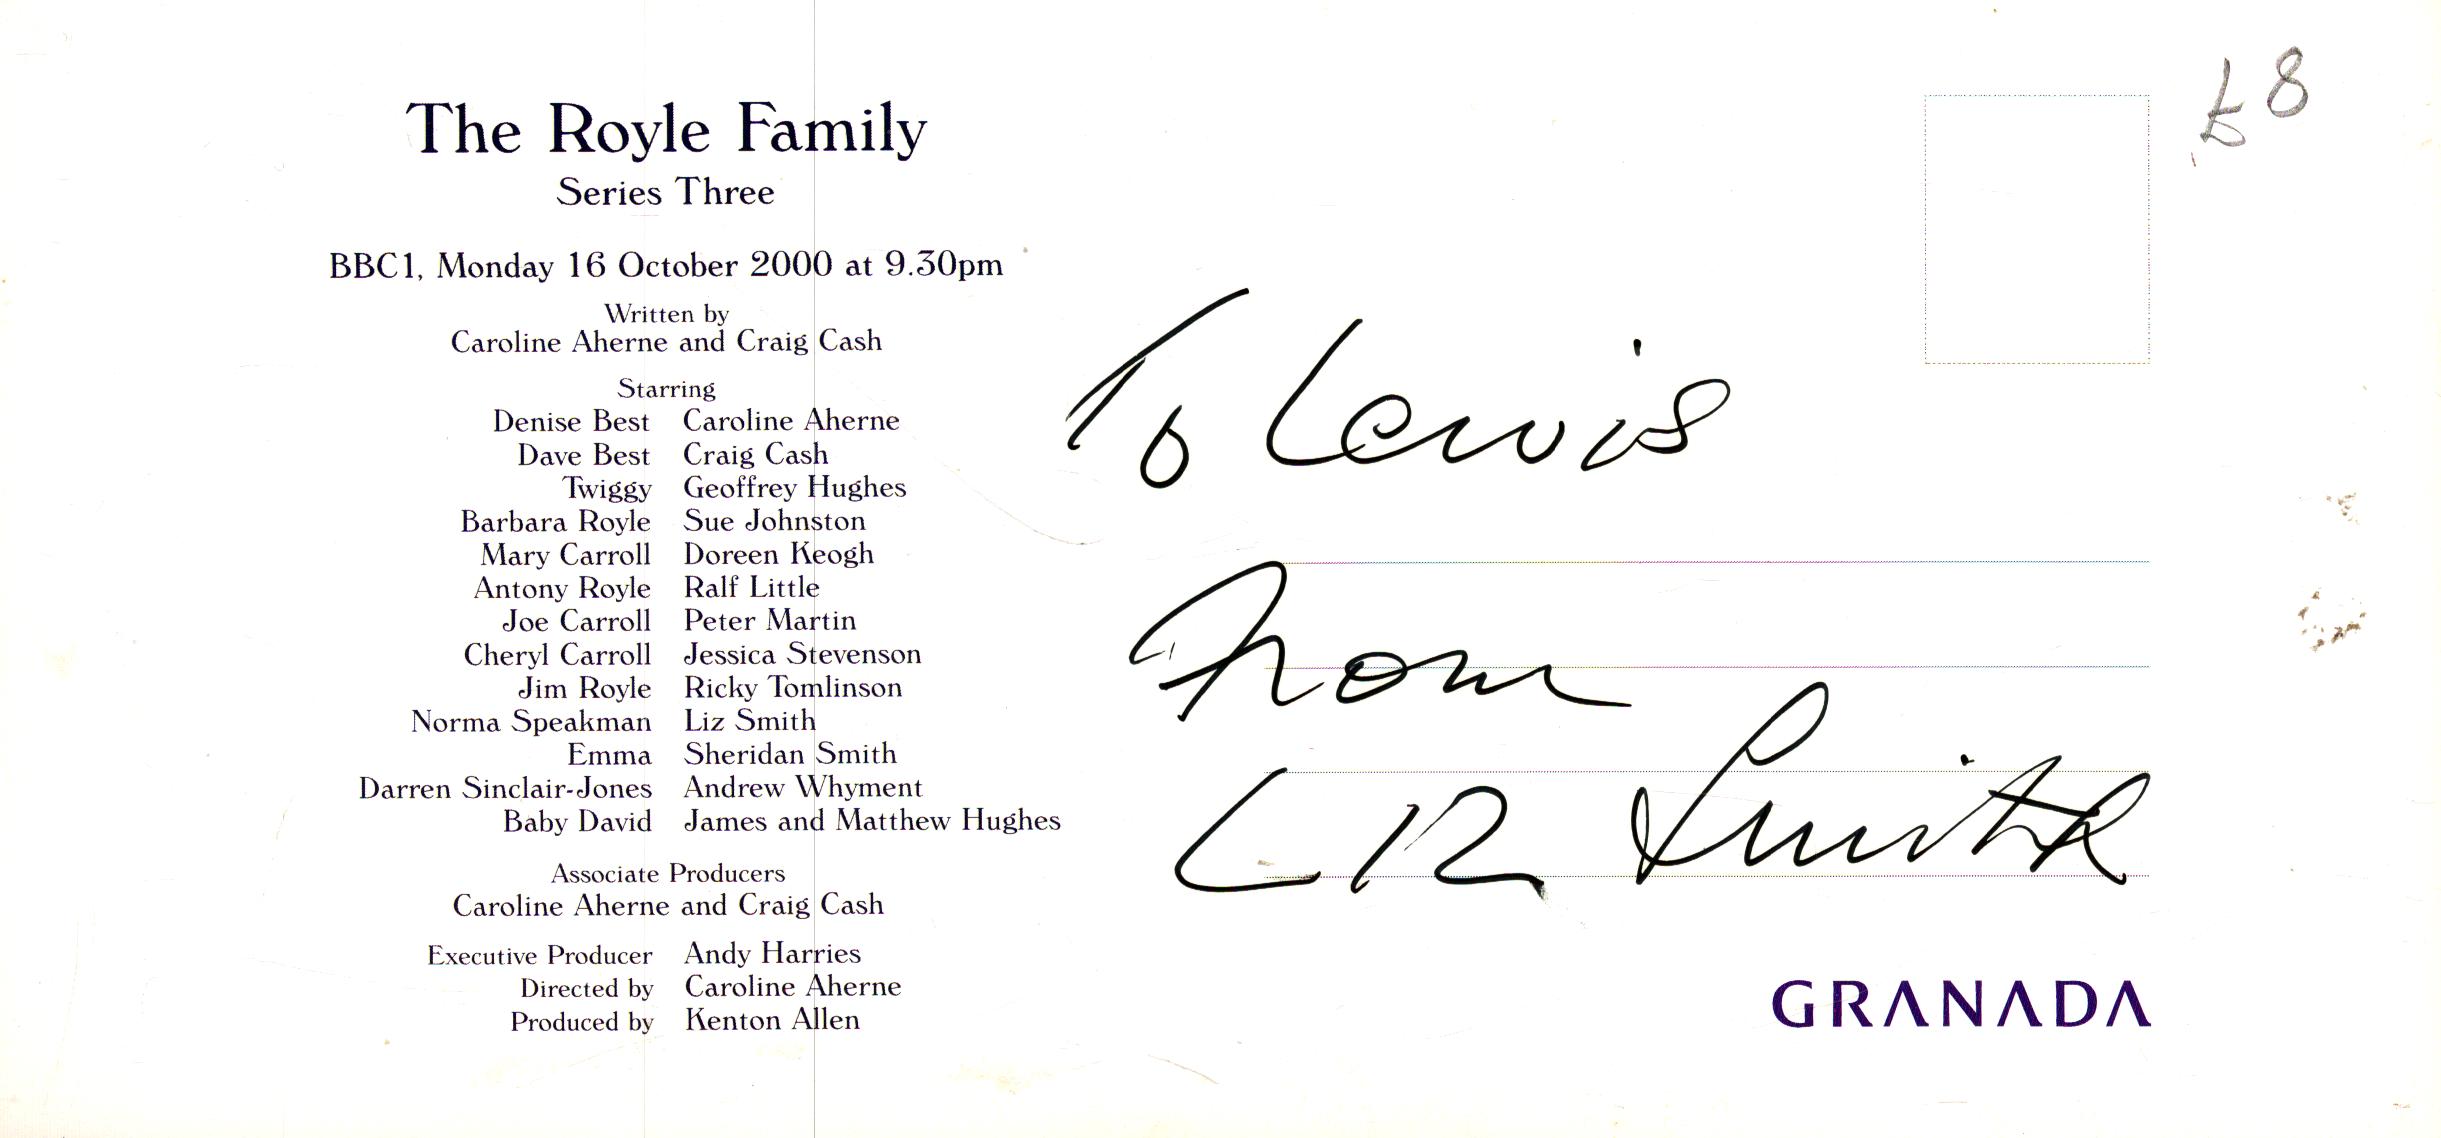 The Royle Family
Series Three
BBC1, Monday 16 October 2000 at 9.30pm
Written by
Caroline Aherne and Craig Cash
Starring
Denise Best Caroline Aherne
Dave Best Craig Cash
Twiggy Geoffrey Hughes
Barbara Royle Sue Johnston
Mary Carroll Doreen Keogh
Antony Royle Ralf Little
Joe Carroll Peter Martin
Cheryl Carroll Jessica Stevenson
Jim Royle Ricky Tomlinson
Norma Speakman Liz Smith
Emma Sheridan Smith
Darren Sinclair-Jones Andrew Whyment
Baby David James and Matthew Hughes
Associate Producers
Caroline Aherne and Craig Cash
Executive Producer Andy Harries
Directed by Caroline Aherne
Produced by Kenton Allen
£8
To Lewis
from
Liz Smith
GRANADA